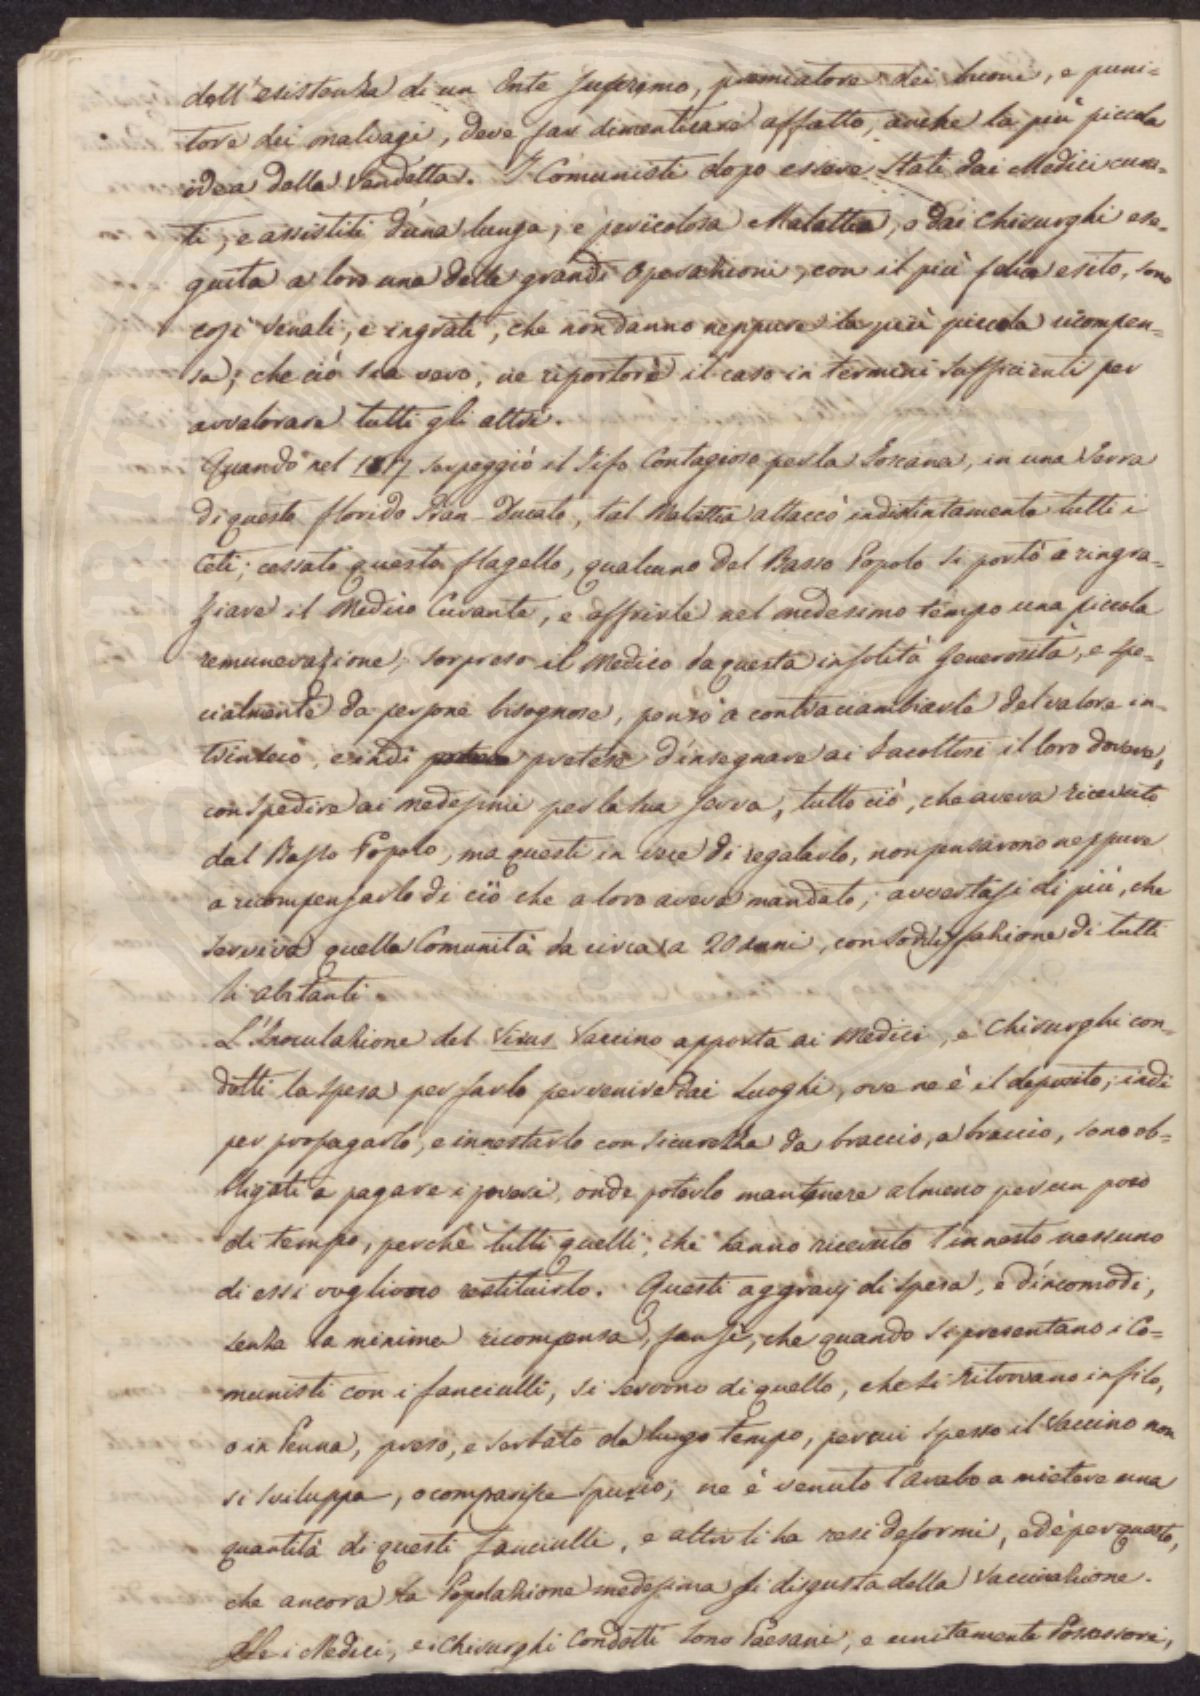 dell'esistenza di un Ente Supremo, premiatore dei buoni, e puni=
tore dei malvagi, deve far dimenticare affatto, anche la più piccola
idea della vendetta. I Comunisti dopo essere stati dai Medici cura=
ti, e assistiti d'una lunga, e pericolosa Malattia, o dai Chirurghi ese=
guita a loro una delle grandi Operazioni, con il più felice esito, sono
così venali, e ingrati, che non danno neppure la più piccola ricompen=
sa; che ciò sia vero, ne riporterò il caso in termini sufficienti per
avvalorare tutti gli altri.
Quando nel 1817 serpeggiò il Tifo Contagioso per la Toscana, in una Terra
di questo florido Gran-Ducato, tal Malattia attaccò indistintamente tutti i
Ceti; cessato questo flagello, qualcuno del Basso Popolo si portò a ringra=
ziare il Medico Curante, e offrirle nel medesimo tempo una piccola
remunerazione; sorpreso il Medico da questa insolità generosità, e spe=
cialmente da persone bisognose, pensò a contraccambiarle del valore in=
trinseco, e indi pretese d'insegnare ai Facoltosi il loro dovere,
con spedire ai medesimi per la sua serva, tutto ciò, che aveva ricevuto
dal Basso Popolo, ma questi in vece di regalarlo, non pensarono neppure
a ricompensarlo di ciò che a loro aveva mandato; avvertasi di più, che
serviva quella Comunità da circa a 20 anni, con sodisfazione di tutti
li abitanti.
L'Inoculazione del Virus Vaccino apporta ai Medici, e Chirurghi con=
dotti la spesa per farlo pervenire dai Luoghi, ove ne è il deposito; indi
per propagarlo, e innestarlo con sicurezza da braccio, a braccio, sono ob=
bligati a pagare i poveri, onde poterlo mantenere almeno per un poco
di tempo, perchè tutti quelli, che hanno ricevuto l'innesto nessuno
di essi vogliono restituirlo. Questi aggravj di spesa, e d'incomodi,
senza la minima ricompensa, fan sì, che quando si presentano i Co=
munisti con i fanciulli, si servono di quello, che si ritrovano in filo,
o in Penna, preso, e serbato da lungo tempo, per cui spesso il Vaccino non
si sviluppa, o comparisce spurio; ne è venuto l'arabo a mietere una
quantità di questi fanciulli, e altri li ha resi deformi, ed è per questo,
che ancora la Popolazione medesima si disgusta della Vaccinazione.
Se i Medici, e i Chirurghi Condotti sono Paesani, e unitamente Possessori,